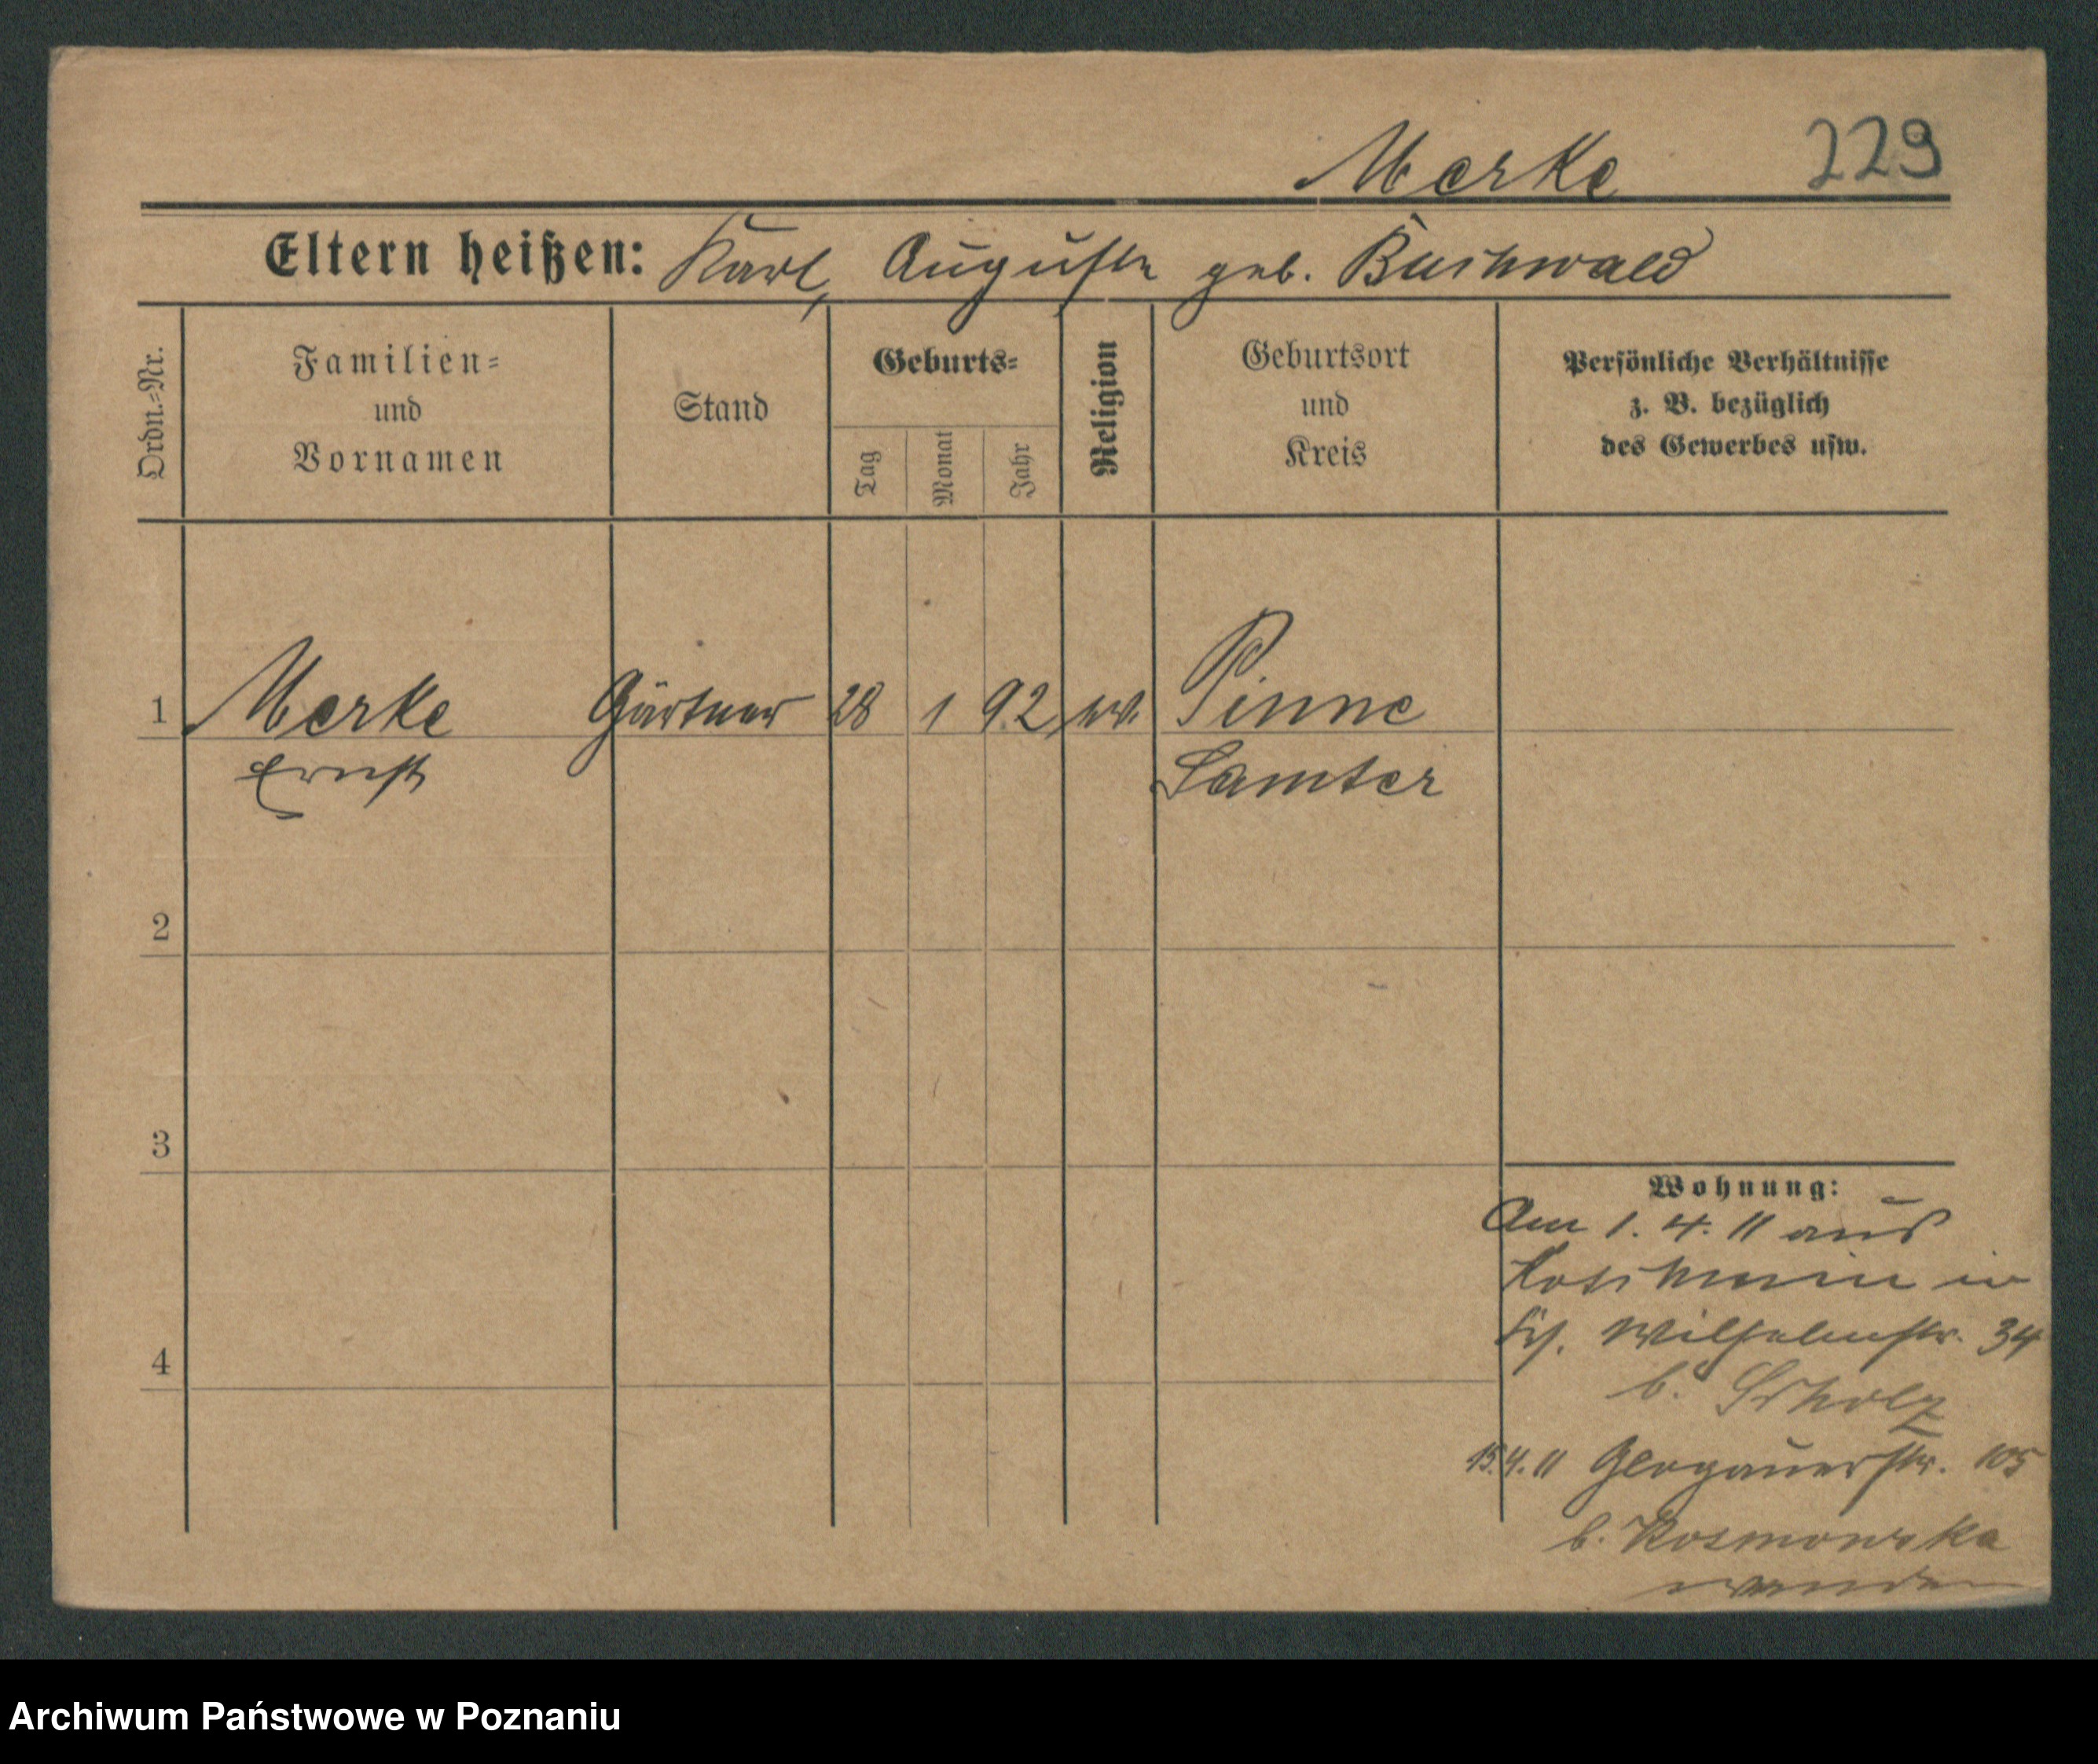 Merke 229
Eltern heißen: Karl, Auguste geb. Buchwald
Ordn.-Nr.
Familien-
und
Vornamen
Stand
Geburts-
Tag
Monat
Jahr
Religion
Geburtsort
und
Kreis
Persönliche Verhältnisse
z. B. bezüglich
des Gewerbes usw.
1 Merke Gärtner 28 1 92 ev. Pinne
Ernst Samter
2
3
4
Wohnung:
Am 1. 4. 11 aus
Koschmin in
Wilhelmstr. 34
b. Scholz
15.4.11 Glogauerstr. 105
b. Kosmowska
Archiwum Państwowe w Poznaniu